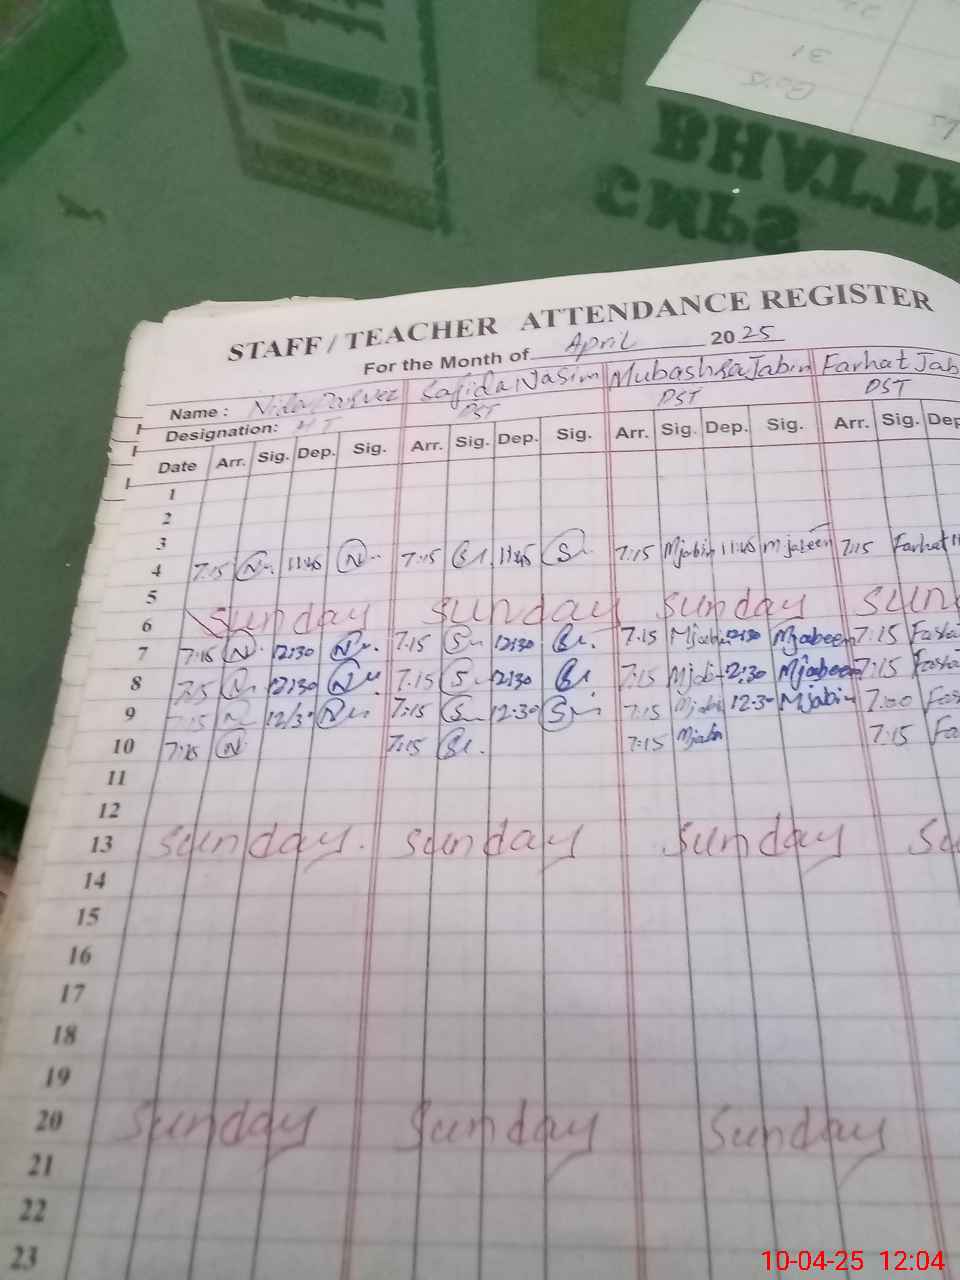 31
BHATTA
GMPS
STAFF / TEACHER ATTENDANCE REGISTER
For the Month of April 2025
Name : Nida Parvez Sajida Nasim Mubashra Jabin Farhat Jab
Designation: HT PST PST PST
Date Arr. Sig. Dep. Sig. Arr. Sig. Dep. Sig. Arr. Sig. Dep. Sig. Arr. Sig. Dep
1
2
3
4 7:15 N 11:45 N 7:15 11:45 S 7:15 Mjabin 11:45 mjabeen 7:15 Farhat
5
6 Sunday Sunday Sunday Sun
7 7:15 N 12:30 N 7:15 S 12:30 7:15 Mjabin 12:30 Mjabeen 7:15
8 7:15 N 12:30 N 7:15 S 12:30 7:15 Mjabi 12:30 Mjabeen 7:15
9 7:15 N 12:30 N 7:15 S 12:30 S 7:15 Mjabi 12:30 Mjabin 7:00
10 7:15 N 7:15 7:15 Mjabin 7:15
11
12
13 Sunday Sunday Sunday Su
14
15
16
17
18
19
20 Sunday Sunday Sunday
21
22
23
10-04-25 12:04